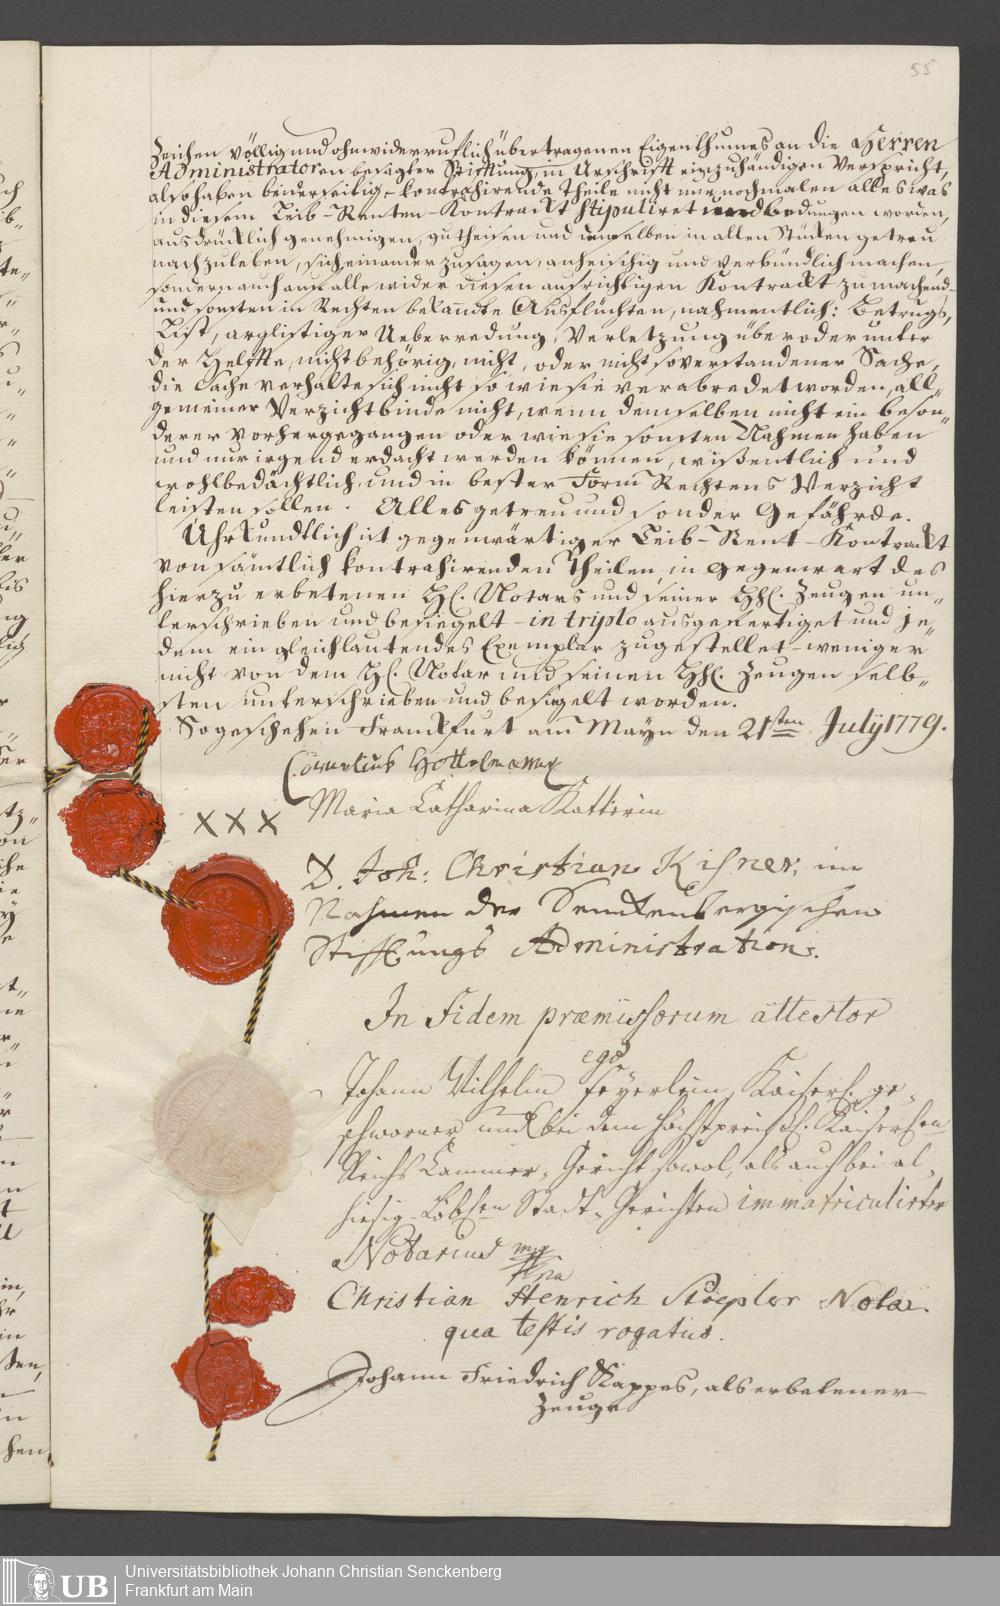 55
Zeichen völlig und ohnwiderruflich übertragenen Eigenthumes an die Herren
Administratoren besagter Stiftung, in Urschrifft einzuhändigen verspricht,
also haben beiderseitige kontrahirende Theile nicht nur nochmalen alles was
in diesem Leib-Renten-Kontrackt stipuliret und bedungen worden,
ausdrücklich genehmigen, gutheisen und demselben in allen Stücken getreu
nachzuleben, sich einander zusagen, anheischig und verbündlich machen,
sondern auch auf alle wider diesen aufrichtigen Kontrackt zu machend-
und sonsten in Rechten bekandte Ausflüchten, nahmentlich: Betrugs,
List, arglistiger Ueberredung, Verletzung über oder unter
der Helffte, nicht behörig, nicht, oder nicht so verstandener Sache,
die Sache verhalte sich nicht so wie sie verabredet worden, all„
gemeiner Verzicht binde nicht, wenn demselben nicht ein beson„
derer vorhergegangen oder wie sie sonsten Nahmen haben
und nur irgend erdacht werden können, wißentlich und
wohlbedächtlich, und in bester Form Rechtens Verzicht
leisten sollen. Alles getreu und sonder Gefährde.
Uhrkundtlich ist gegenwärtiger Leib-Rent-Kontrackt
von sämtlich kontrahirenden Theilen, in Gegenwart des
hierzu erbetenen H. Notars und seiner HH. Zeugen un„
terschrieben und besiegelt - in triplo ausgefertiget und je„
dem ein gleichlautendes Exemplar zugestellet - weniger
nicht von dem H. Notar und seinen HH. Zeugen selb„
sten unterschrieben und besiegelt worden.
So geschehen Franckfurt am Mayn den 21sten July 1779.
Cornelius
XXX Maria Catharina
D. Joh: Christian Kisner, im
Nahmen der Senckenbergischen
Stifftungs Administration.
In Fidem præmissorum attestor
ego
Johann Wilhelm Feyerlein, Kaiserl. ge„
schworner, und bei dem höchstpreißl. Kaiserlen
Reichs Cammer-Gericht sowol, als auch bei al„
hiesig Löblen Stadt-Gerichten immatriculirter
Notarius mpp
Christian Henrich Notar.
qua testis rogatus.
Johann Friedrich Kappes, als erbetener
Zeuge
UB
Universitätsbibliothek Johann Christian Senckenberg
Frankfurt am Main